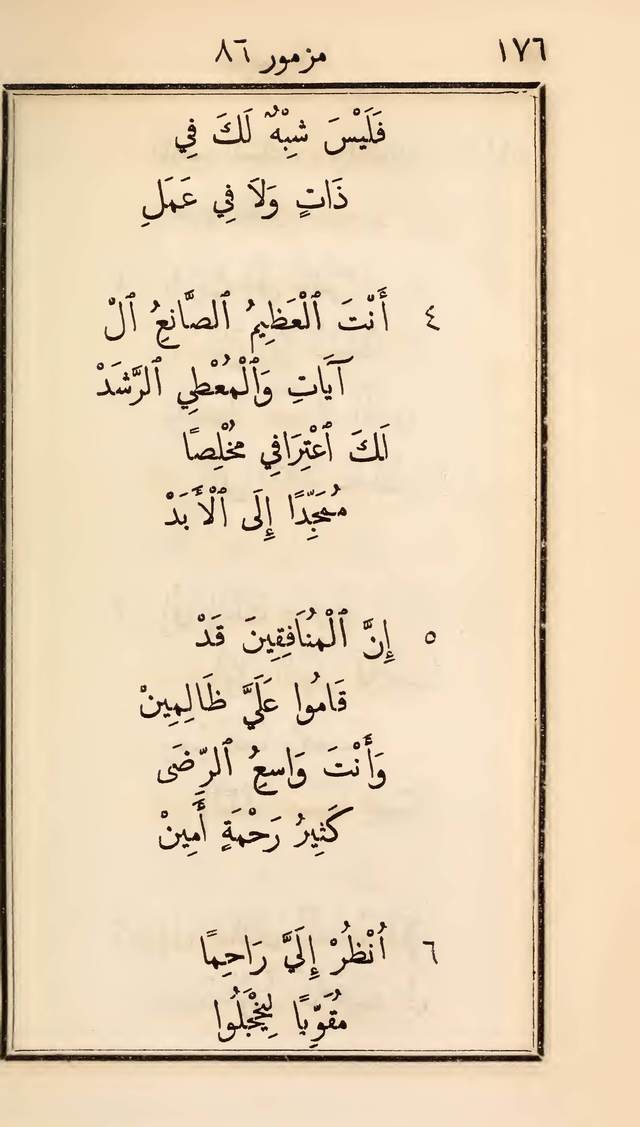 ١٧٦ مزمور ٨٦
فَلَيْسَ شِبْهٌ لَكَ فِي
ذَاتٍ وَلاَ فِي عَمَلِ
٤ أَنْتَ ٱلْعَظِيمُ ٱلصَّانِعُ ٱلْ
آيَاتِ وَٱلْمُعْطِي ٱلرَّشَدْ
لَكَ ٱعْتِرَافِي مُخْلِصًا
مُمَجِّدًا إِلَى ٱلْأَبَدْ
٥ إِنَّ ٱلْمُنَافِقِينَ قَدْ
قَامُوا عَلَيَّ ظَالِمِينْ
وَأَنْتَ وَاسِعُ ٱلرِّضَى
كَثِيرُ رَحْمَةٍ أَمِينْ
٦ اُنْظُرْ إِلَيَّ رَاحِمًا
مُقَوِّيًا لِيَخْجَلُوا